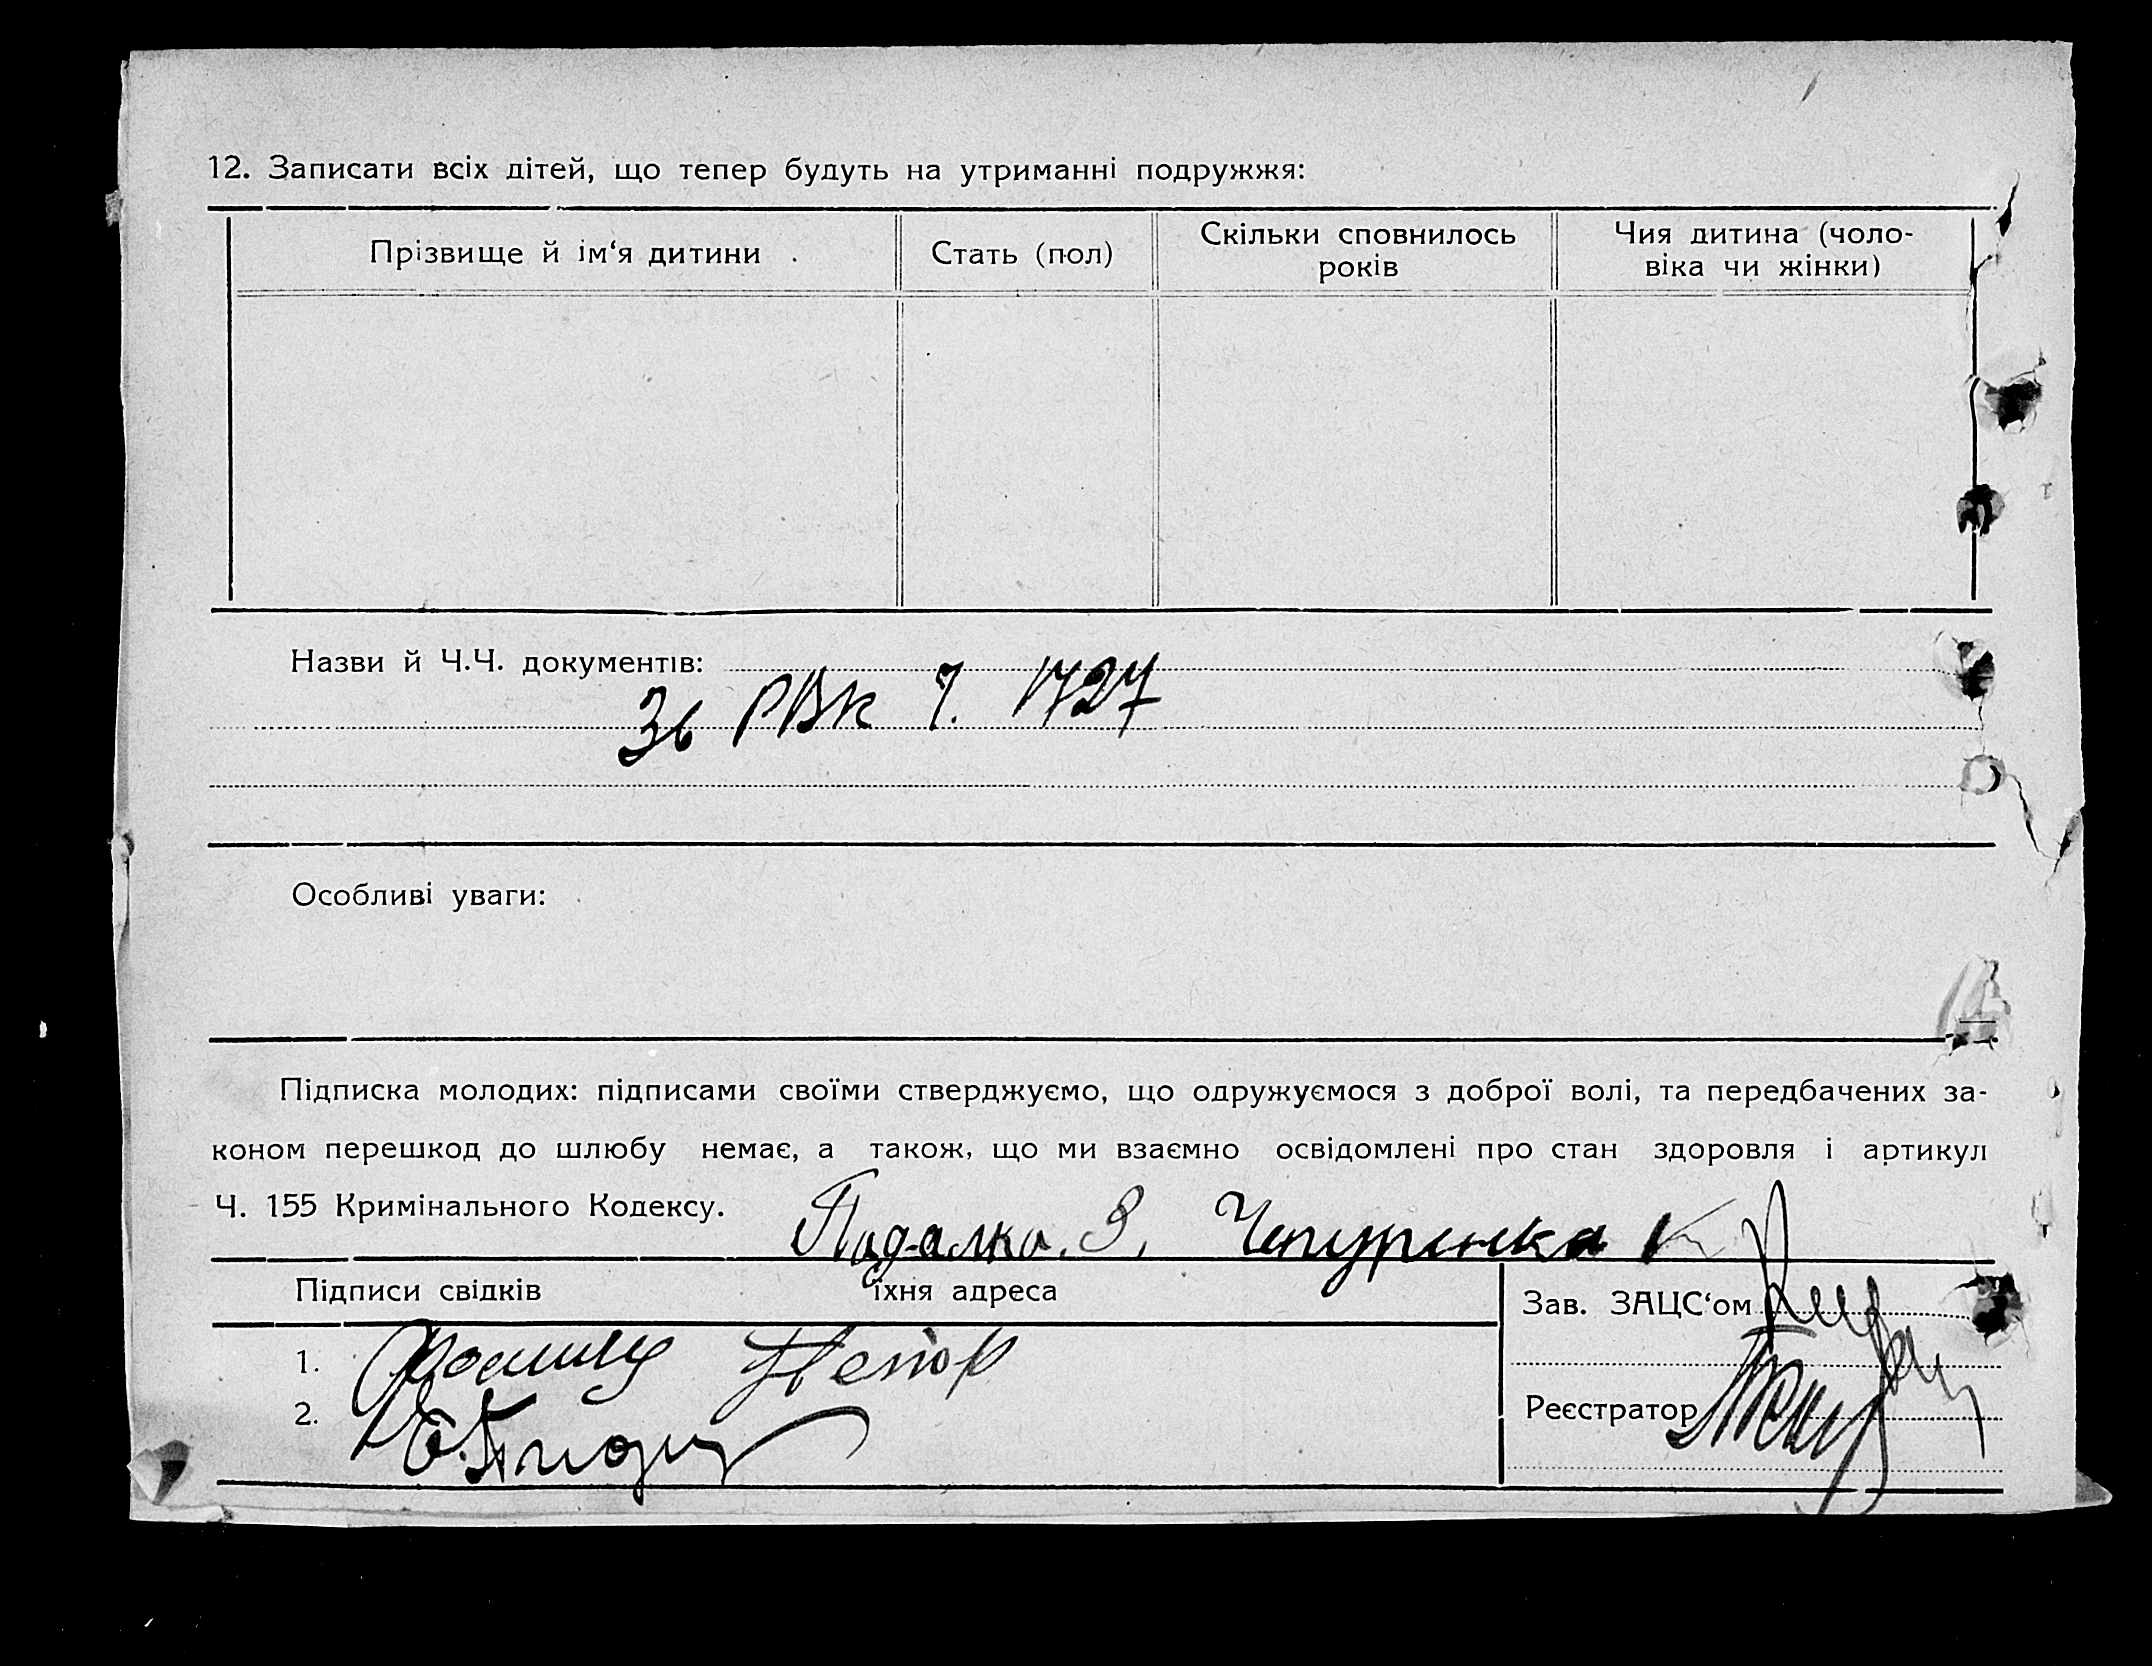 12. Записати всіх дітей, що тепер будуть на утриманні подружжя:
Прізвище й ім‘я дитини
Стать (пол)
Скільки сповнилось
років
Чия дитина (чоло-
віка чи жінки)
Назви й Ч.Ч. документів:
Зв РВК Ч. 1727
Особливі уваги:
Підписка молодих: підписами своїми стверджуємо, що одружуємося з доброї волі, та передбачених за-
коном перешкод до шлюбу немає, а також, що ми взаємно освідомлені про стан здоровля і артикул
Ч. 155 Кримінального Кодексу.
Падалка. З. Чепуренка К
Підписи свідків їхня адреса
Зав. ЗАЦС‘ом
1.
2.
Реєстратор